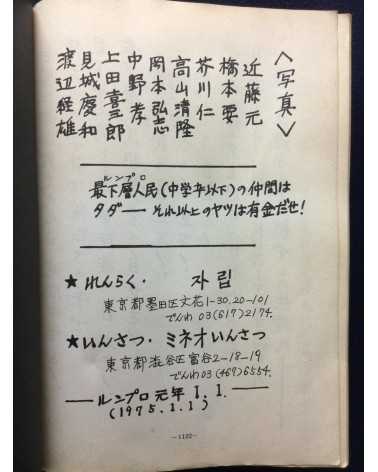 〈写真〉
近藤元
橋本要
芥川仁
高山清隆
岡本弘志
中野孝
上田喜三郎
見城慶和
渡辺経雄
ルンプロ
最下層人民(中学卆以下)の仲間は
タダ── それ以上のヤツは有金だせ!
★れんらく・ 자립
東京都墨田区文花1-30.20-101
でんわ03(617)2174.
★いんさつ・ミネオいんさつ
東京都渋谷区富谷2-18-19
でんわ03(469)6554.
──ルンプロ元年 1.1.──
(1975.1.1)